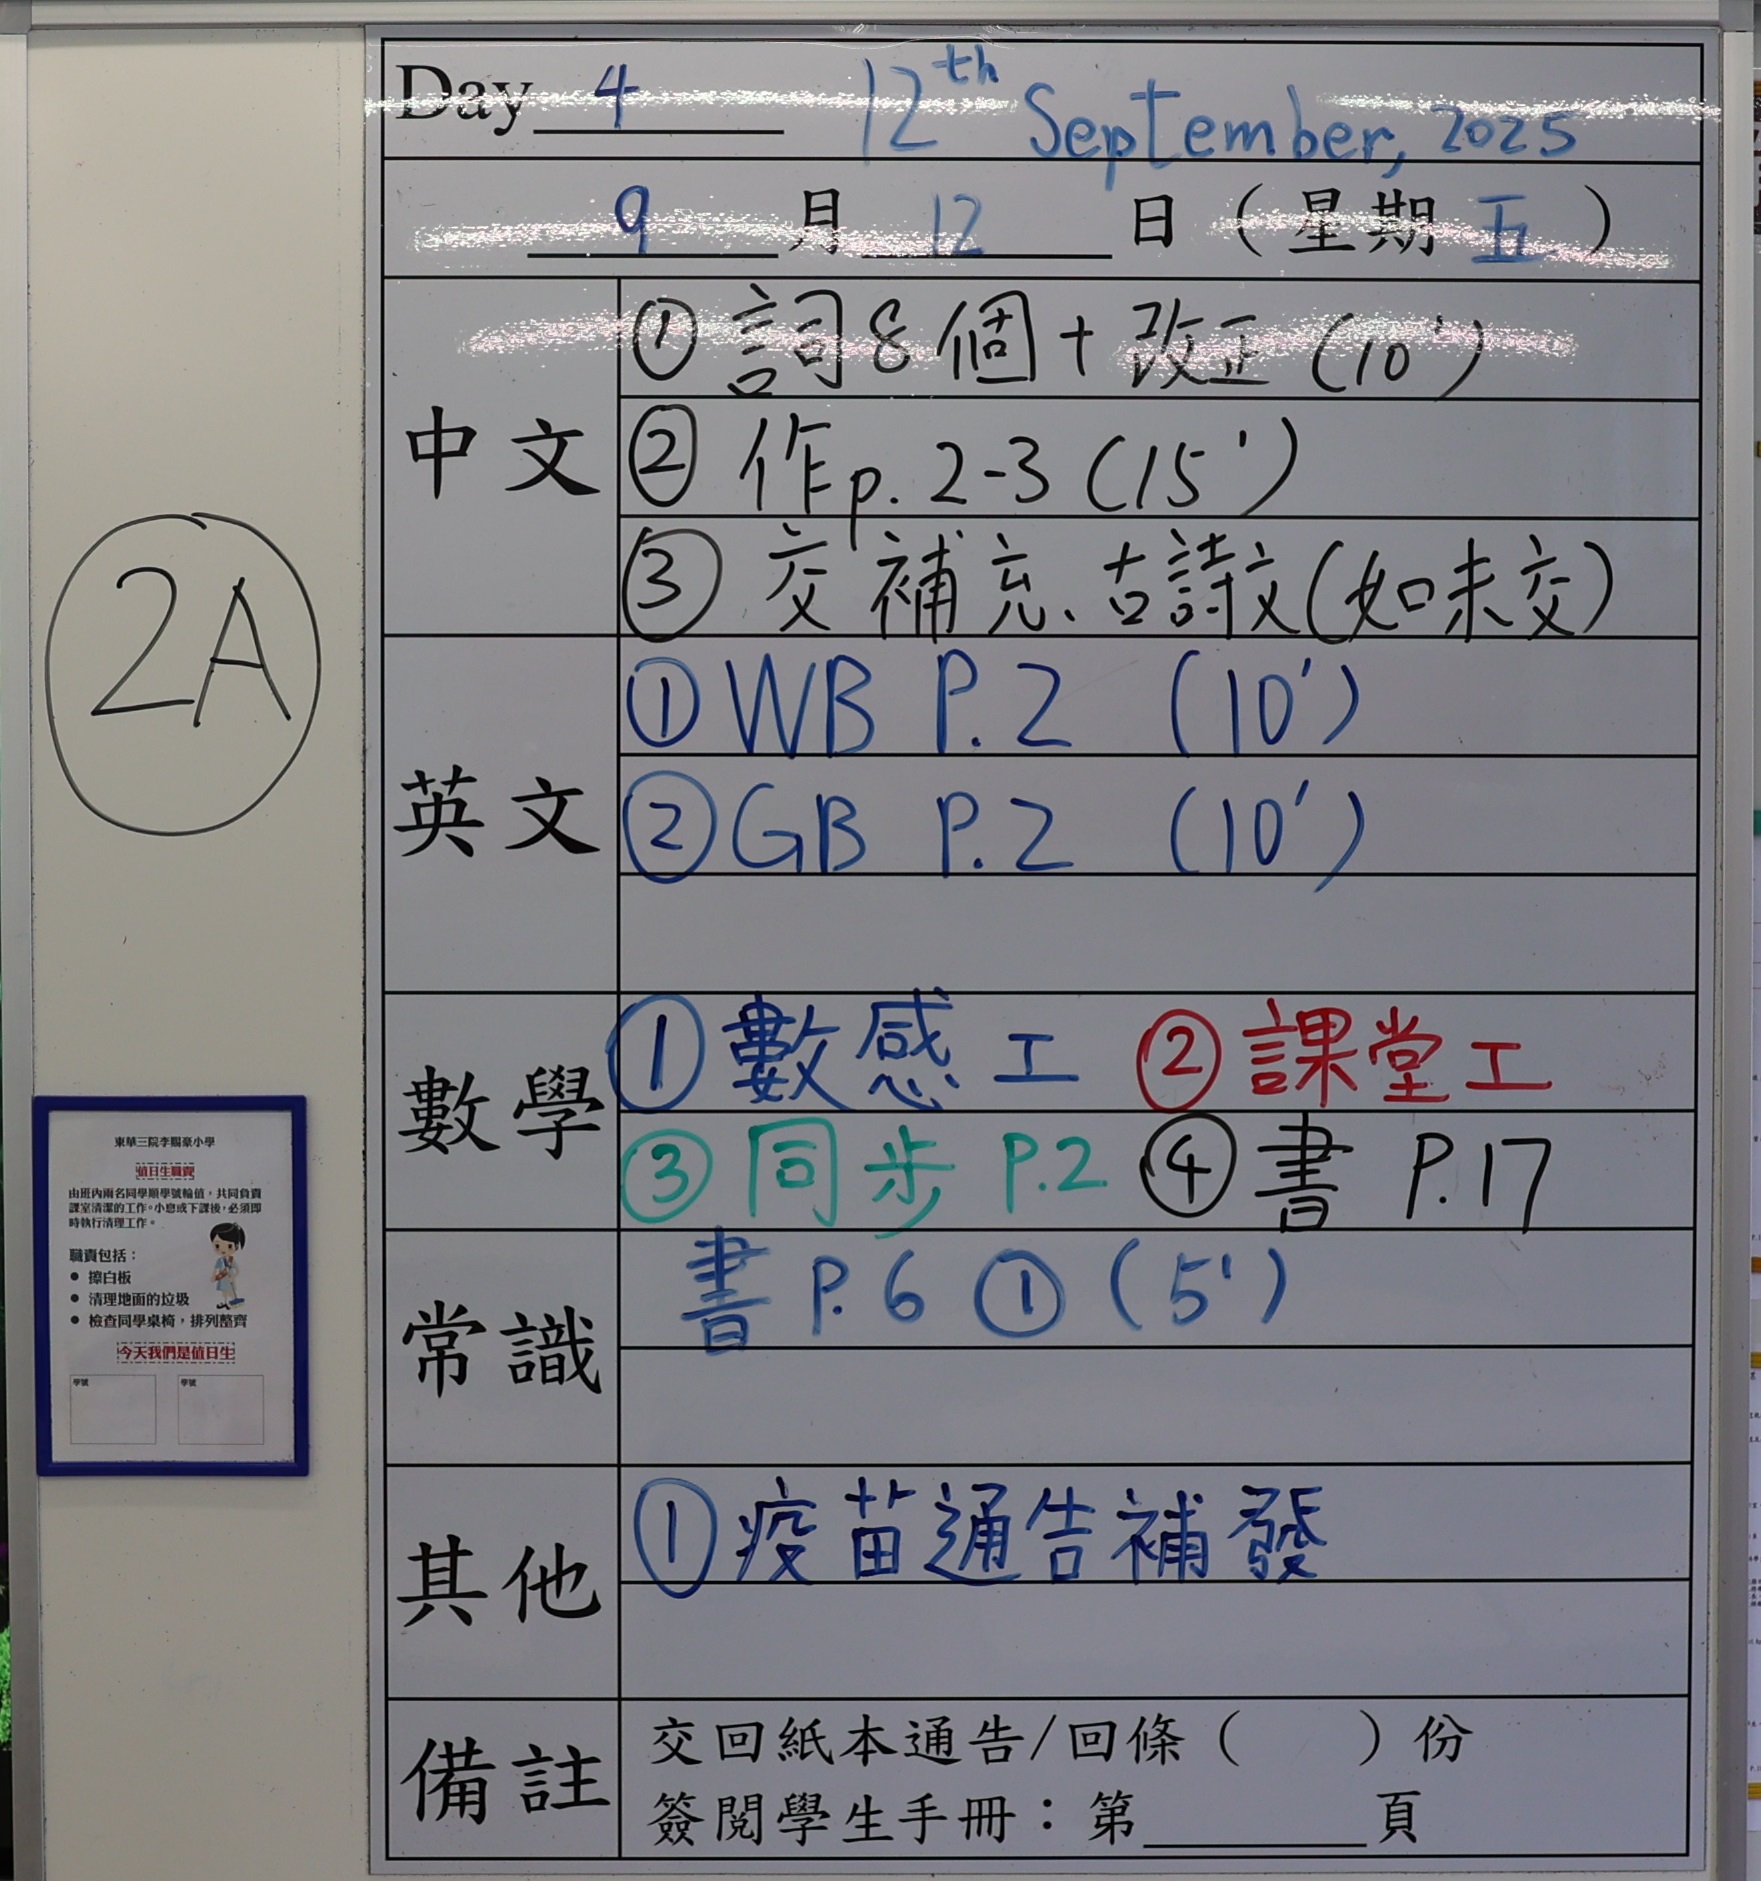 Day 4 12th September, 2025
9月12日(星期五)
中文
① 詞8個+改正(10')
② 作p.2-3(15')
③ 交補充、古詩文(如未交)
英文
① WB P.2 (10')
② GB P.2 (10')
數學
① 數感工 ② 課堂工
③ 同步 P.2 ④ 書 P.17
常識
書 P.6 ① (5')
其他
① 疫苗通告補發
備註
交回紙本通告/回條( )份
簽閱學生手冊:第______頁
2A
東華三院李賜豪小學
值日生職責
由班內兩名同學順學號輪值,共同負責
課室清潔的工作。小息或下課後,必須即
時執行清理工作。
職責包括:
● 擦白板
● 清理地面的垃圾
● 檢查同學桌椅,排列整齊
今天我們是值日生
學號 學號